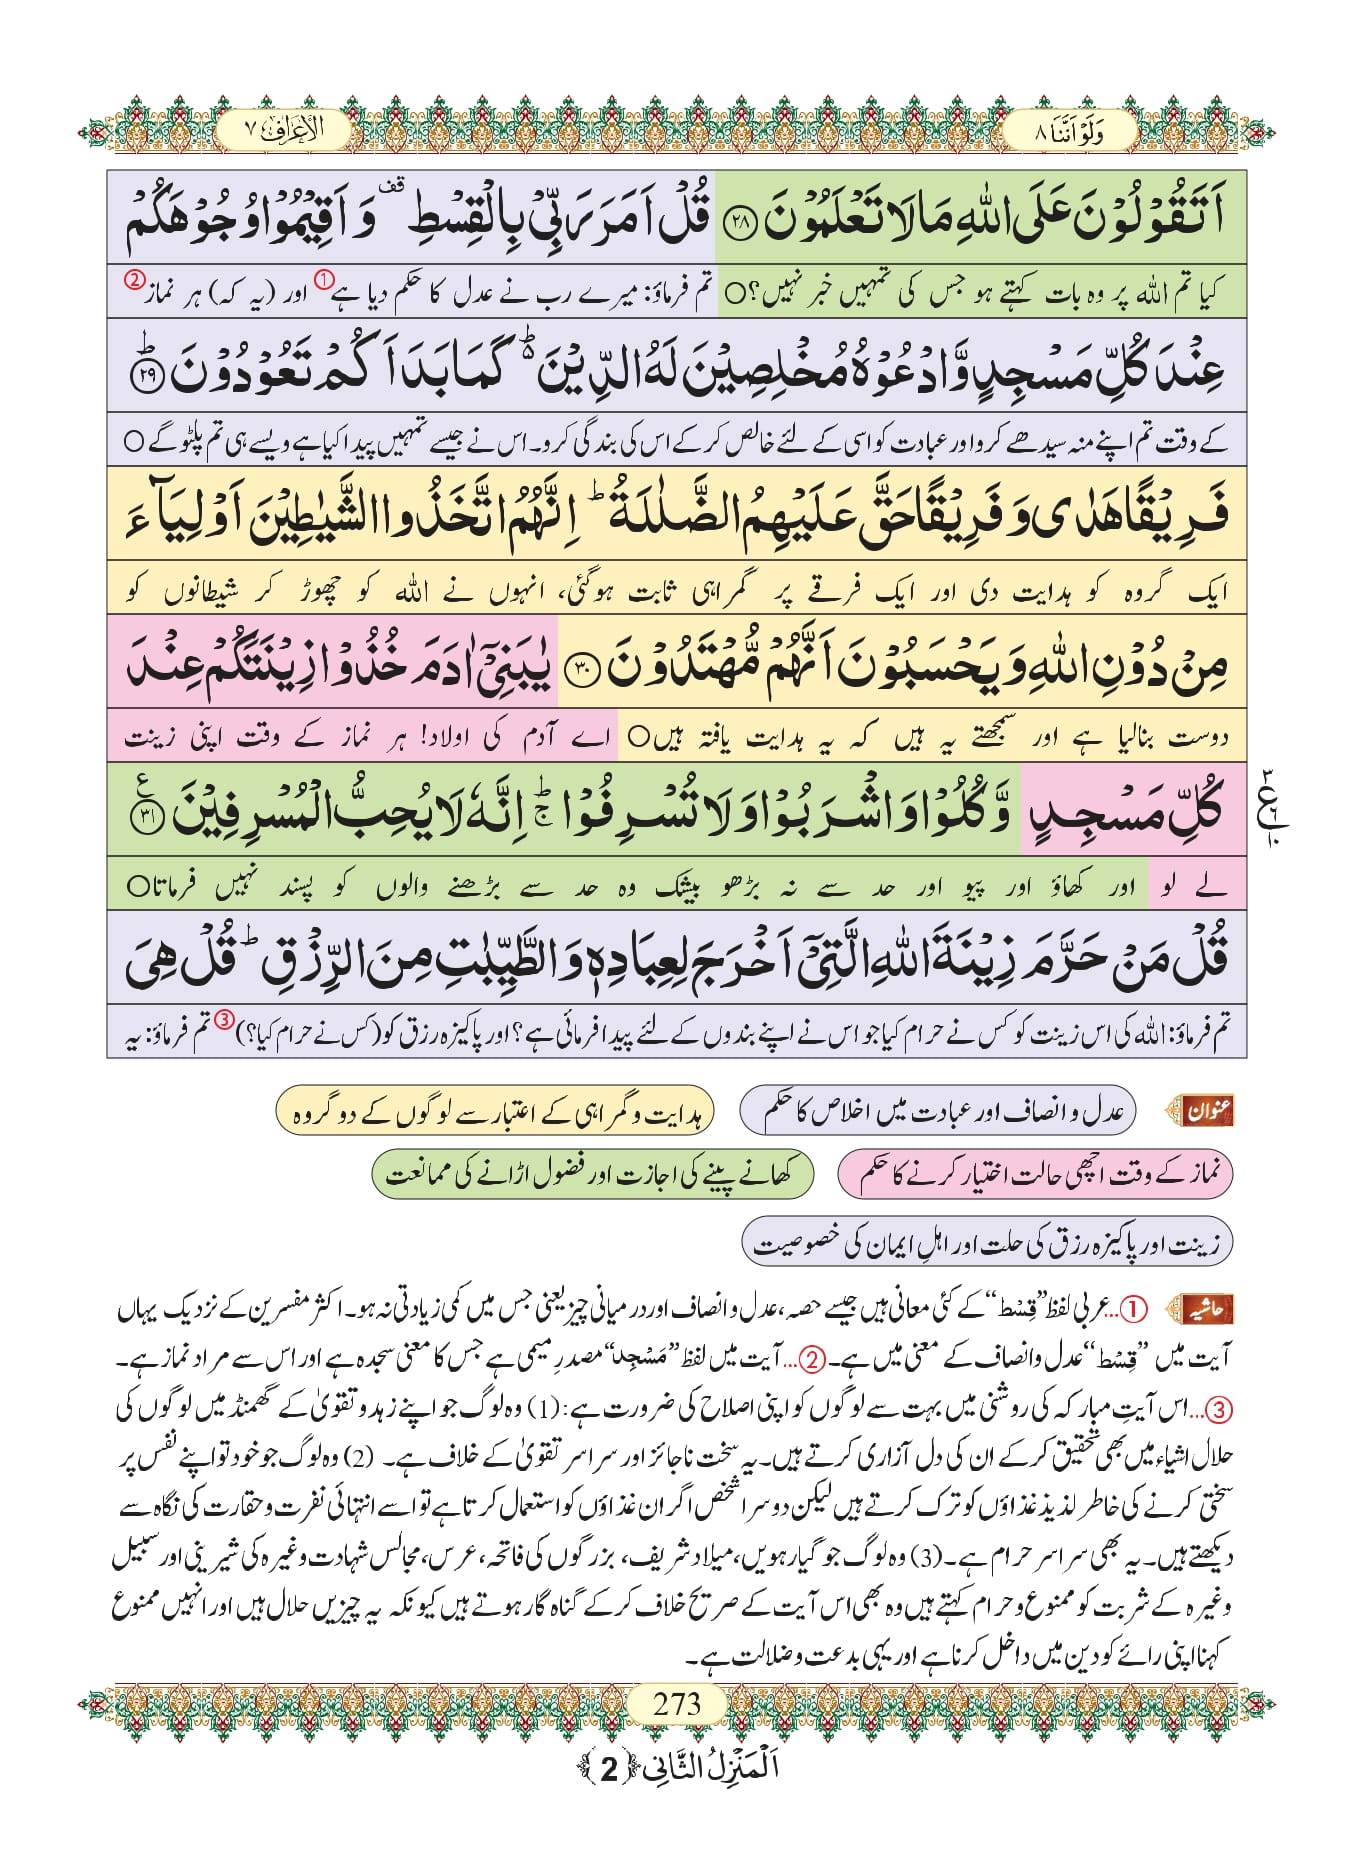 وَلَوْ اَنَّنَا ٨
الْاَعْرَاف ٧
اَتَقُوْلُوْنَ عَلَى اللّٰهِ مَا لَا تَعْلَمُوْنَ ﴿٢٨﴾ قُلْ اَمَرَ رَبِّیْ بِالْقِسْطِ ۫ وَ اَقِیْمُوْا وُجُوْهَكُمْ
کیا تم اللہ پر وہ بات کہتے ہو جس کی تمہیں خبر نہیں؟○ تم فرماؤ: میرے رب نے عدل کا حکم دیا ہے① اور (یہ کہ) ہر نماز②
عِنْدَ كُلِّ مَسْجِدٍ وَّ ادْعُوْهُ مُخْلِصِیْنَ لَهُ الدِّیْنَ ؕ۬ كَمَا بَدَاَكُمْ تَعُوْدُوْنَ ؕ﴿٢٩﴾
کے وقت تم اپنے منہ سیدھے کرو اور عبادت کو اسی کے لئے خالص کرکے اس کی بندگی کرو۔ اس نے جیسے تمہیں پیدا کیا ہے ویسے ہی تم پلٹو گے ○
فَرِیْقًا هَدٰى وَ فَرِیْقًا حَقَّ عَلَیْهِمُ الضَّلٰلَةُ ؕ اِنَّهُمُ اتَّخَذُوا الشَّیٰطِیْنَ اَوْلِیَآءَ
ایک گروہ کو ہدایت دی اور ایک فرقے پر گمراہی ثابت ہوگئی، انہوں نے اللہ کو چھوڑ کر شیطانوں کو
مِنْ دُوْنِ اللّٰهِ وَ یَحْسَبُوْنَ اَنَّهُمْ مُّهْتَدُوْنَ ﴿٣٠﴾ یٰبَنِیْۤ اٰدَمَ خُذُوْا زِیْنَتَكُمْ عِنْدَ
دوست بنالیا ہے اور سمجھتے یہ ہیں کہ یہ ہدایت یافتہ ہیں○ اے آدم کی اولاد! ہر نماز کے وقت اپنی زینت
كُلِّ مَسْجِدٍ وَّ كُلُوْا وَ اشْرَبُوْا وَ لَا تُسْرِفُوْا ۚ اِنَّهٗ لَا یُحِبُّ الْمُسْرِفِیْنَ ﴿٣١﴾ ع
٣
ع
١٠
لے لو اور کھاؤ اور پیو اور حد سے نہ بڑھو بیشک وہ حد سے بڑھنے والوں کو پسند نہیں فرماتا○
قُلْ مَنْ حَرَّمَ زِیْنَةَ اللّٰهِ الَّتِیْۤ اَخْرَجَ لِعِبَادِهٖ وَ الطَّیِّبٰتِ مِنَ الرِّزْقِ ؕ قُلْ هِیَ
تم فرماؤ: اللہ کی اس زینت کو کس نے حرام کیا جو اس نے اپنے بندوں کے لئے پیدا فرمائی ہے؟ اور پاکیزہ رزق کو (کس نے حرام کیا؟)③ تم فرماؤ: یہ
عنوان عدل و انصاف اور عبادت میں اخلاص کا حکم ہدایت و گمراہی کے اعتبار سے لوگوں کے دو گروہ
نماز کے وقت اچھی حالت اختیار کرنے کا حکم کھانے پینے کی اجازت اور فضول اڑانے کی ممانعت
زینت اور پاکیزہ رزق کی حلت اور اہلِ ایمان کی خصوصیت
حاشیہ ①...عربی لفظ ”قِسْط“ کے کئی معانی ہیں جیسے حصہ، عدل و انصاف اور درمیانی چیز یعنی جس میں کمی زیادتی نہ ہو۔ اکثر مفسرین کے نزدیک یہاں
آیت میں ”قِسْط“ عدل وانصاف کے معنی میں ہے۔ ②...آیت میں لفظ ”مَسْجِد“ مصدرِ میمی ہے جس کا معنی سجدہ ہے اور اس سے مراد نماز ہے۔
③...اس آیتِ مبارکہ کی روشنی میں بہت سے لوگوں کو اپنی اصلاح کی ضرورت ہے: (1) وہ لوگ جو اپنے زہد و تقویٰ کے گھمنڈ میں لوگوں کی
حلال اشیاء میں بھی تحقیق کرکے ان کی دل آزاری کرتے ہیں۔ یہ سخت ناجائز اور سراسر تقویٰ کے خلاف ہے۔ (2) وہ لوگ جو خود تو اپنے نفس پر
سختی کرنے کی خاطر لذیذ غذاؤں کو ترک کرتے ہیں لیکن دوسرا شخص اگر ان غذاؤں کو استعمال کرتا ہے تو اسے انتہائی نفرت و حقارت کی نگاہ سے
دیکھتے ہیں۔ یہ بھی سراسر حرام ہے۔ (3) وہ لوگ جو گیارہویں، میلاد شریف، بزرگوں کی فاتحہ، عرس، مجالس شہادت وغیرہ کی شیرینی اور سبیل
وغیرہ کے شربت کو ممنوع و حرام کہتے ہیں وہ بھی اس آیت کے صریح خلاف کرکے گناہ گار ہوتے ہیں کیونکہ یہ چیزیں حلال ہیں اور انہیں ممنوع
کہنا اپنی رائے کو دین میں داخل کرنا ہے اور یہی بدعت و ضلالت ہے۔
273
اَلْمَنْزِلُ الثَّانِی ﴿2﴾